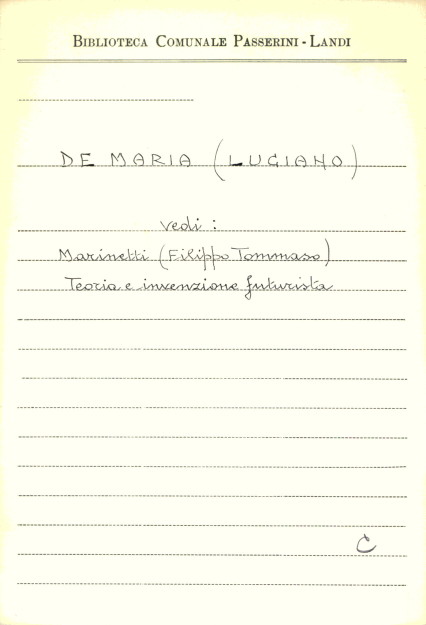 BIBLIOTECA COMUNALE PASSERINI - LANDI
DE MARIA (LUCIANO)
vedi :
Marinetti (Filippo Tommaso)
Teoria e invenzione futurista
C